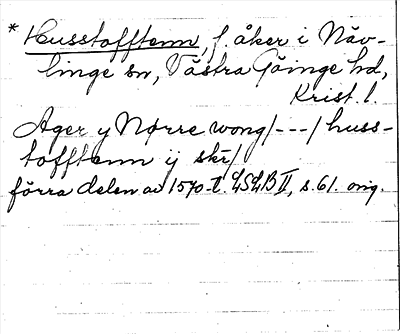 * Husstofftenn, f. åker i Näv-
linge sn, Västra Göinge hd,
Krist. l.
Ager y Nørre wong/---/ huss-
tofftenn ij skr/
förra delen av 1570-t. LSLB II, s. 61. orig.